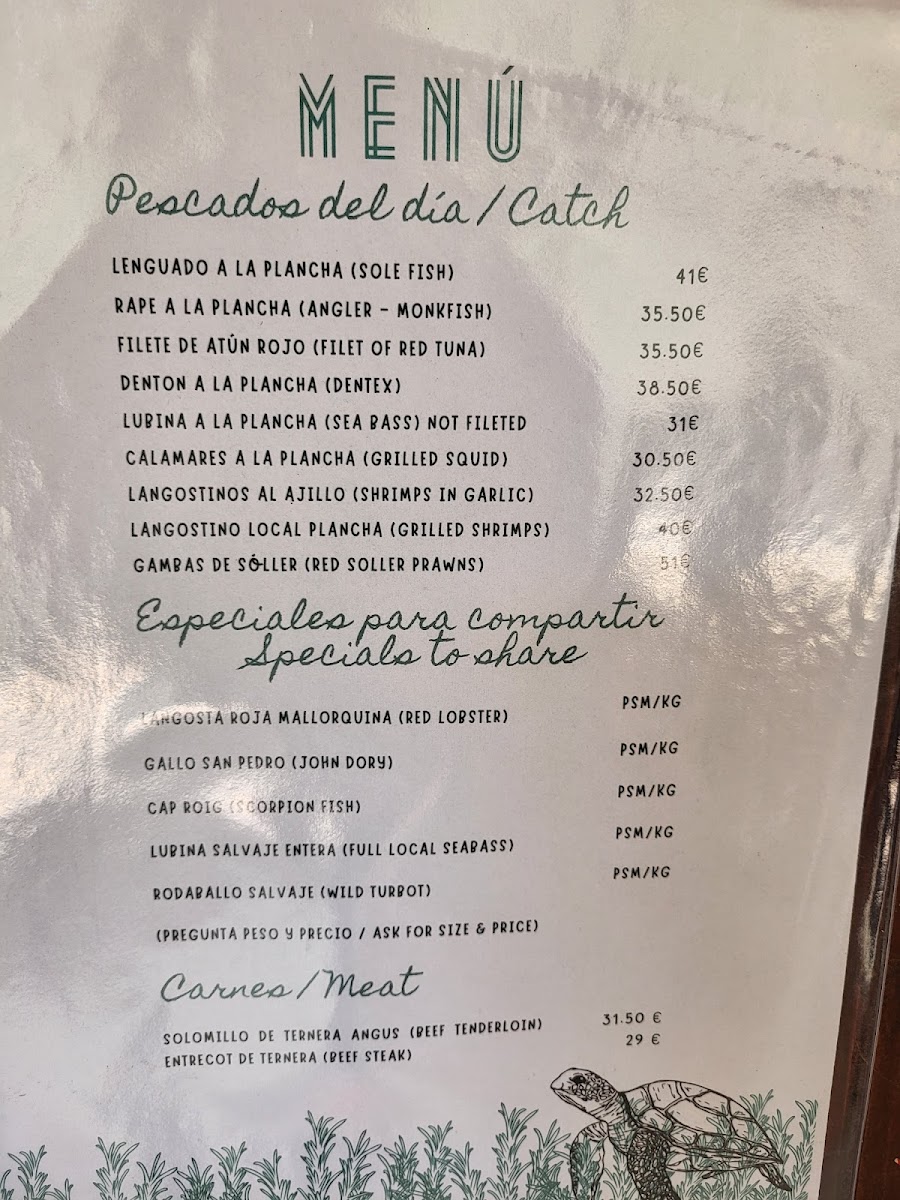 MENÚ
Pescados del día / Catch
LENGUADO A LA PLANCHA (SOLE FISH) 41€
RAPE A LA PLANCHA (ANGLER - MONKFISH) 35.50€
FILETE DE ATÚN ROJO (FILET OF RED TUNA) 35.50€
DENTON A LA PLANCHA (DENTEX) 38.50€
LUBINA A LA PLANCHA (SEA BASS) NOT FILETED 31€
CALAMARES A LA PLANCHA (GRILLED SQUID) 30.50€
LANGOSTINOS AL AJILLO (SHRIMPS IN GARLIC) 32.50€
LANGOSTINO LOCAL PLANCHA (GRILLED SHRIMPS) 40€
GAMBAS DE SÓLLER (RED SOLLER PRAWNS) 51€
Especiales para compartir
Specials to share
LANGOSTA ROJA MALLORQUINA (RED LOBSTER) PSM/KG
GALLO SAN PEDRO (JOHN DORY) PSM/KG
CAP ROIG (SCORPION FISH) PSM/KG
LUBINA SALVAJE ENTERA (FULL LOCAL SEABASS) PSM/KG
RODABALLO SALVAJE (WILD TURBOT) PSM/KG
(PREGUNTA PESO Y PRECIO / ASK FOR SIZE & PRICE)
Carnes / Meat
SOLOMILLO DE TERNERA ANGUS (BEEF TENDERLOIN) 31.50 €
ENTRECOT DE TERNERA (BEEF STEAK) 29 €